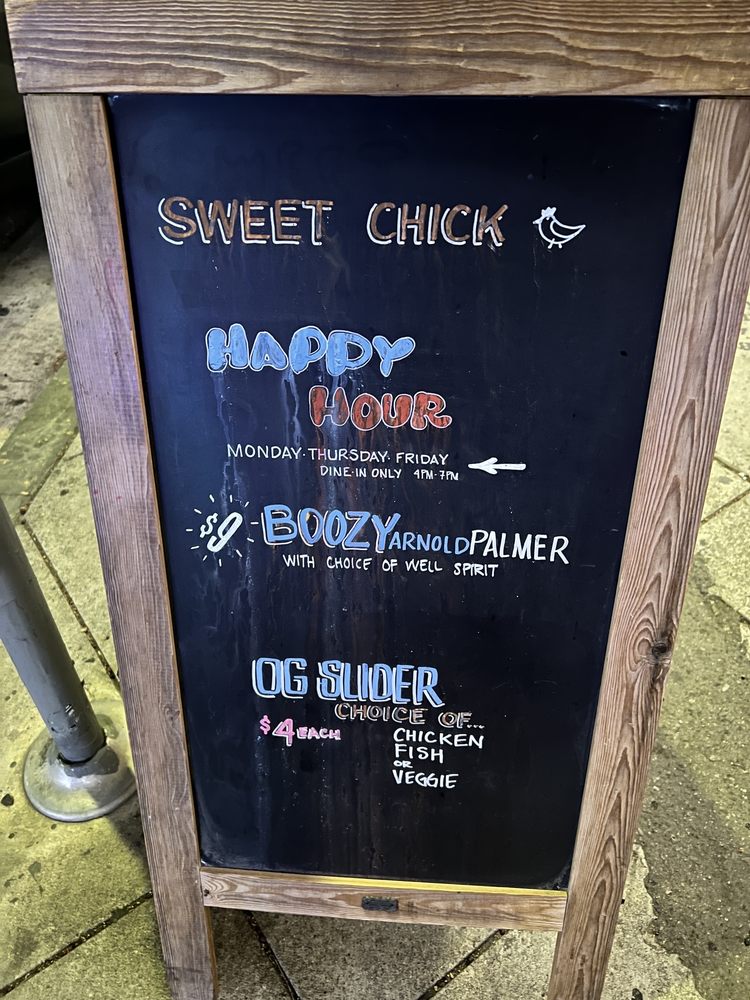 SWEET CHICK
HAPPY
HOUR
MONDAY·THURSDAY·FRIDAY
DINE·IN ONLY 4PM-7PM
$9 BOOZY ARNOLD PALMER
WITH CHOICE OF WELL SPIRIT
OG SLIDER
CHOICE OF...
$4 EACH
CHICKEN
FISH
OR
VEGGIE